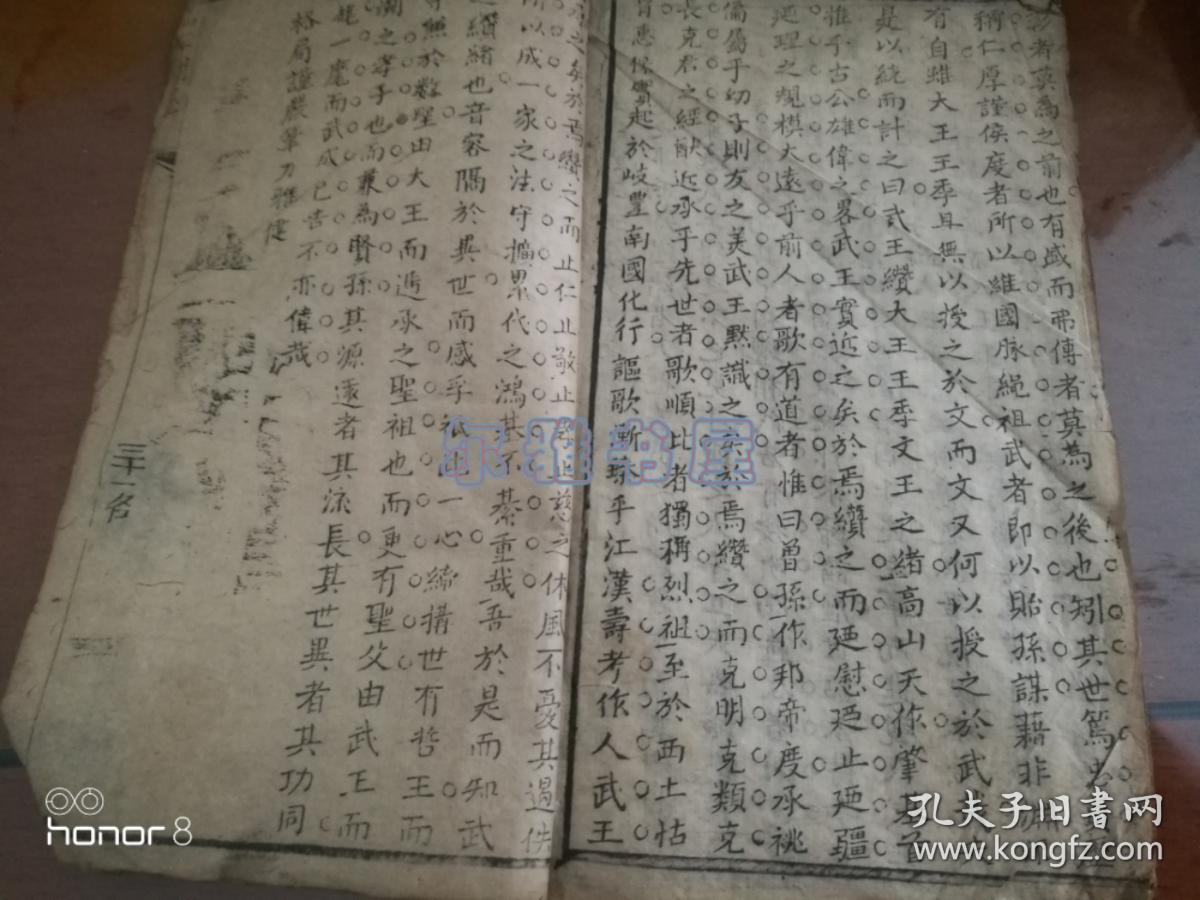 者莫為之前也有感而弗傳者莫為之後也矧其世篤
猶仁厚謹侯度者所以維國脉繩祖武者即以貽孫謀藉非
有自雖大王王季且無以授之於文而文又何以授之於武
是以統而計之曰武王纘大王王季文王之緒高山天作肇基
惟予古公雄偉之畧武王實近之矣於焉纘之而廼慰廼止廼疆
廼理之規模大遠乎前人者歌有道者惟曰曾孫作邦帝度承祧
偏屬乎幼子則友之美武王默識之矣於焉纘之而克明克類克
長克君之經猷近承乎先世者歌順比者獨稱烈祖至於西土怙
冒惠保實起於岐豐南國化行謳歌漸珠乎江漢壽考作人武王
之矣於焉纘之而止仁止敬止孝止慈之休風不憂其過佚
所以成一家之法守擴累代之鴻基不綦重哉吾於是而知武
之纘緒也音容隔於異世而感孚祗此一心締搆世有哲王而
無於數聖由大王而遞承之聖祖也而更有聖父由武王而
之孝子也而兼為賢孫其源遂者其流長其世異者其功同
一麾而武成已告不亦偉哉
格局謹嚴筆力雅健
三十一名
尔雅书屋
honor 8
孔夫子旧书网
www.kongfz.com